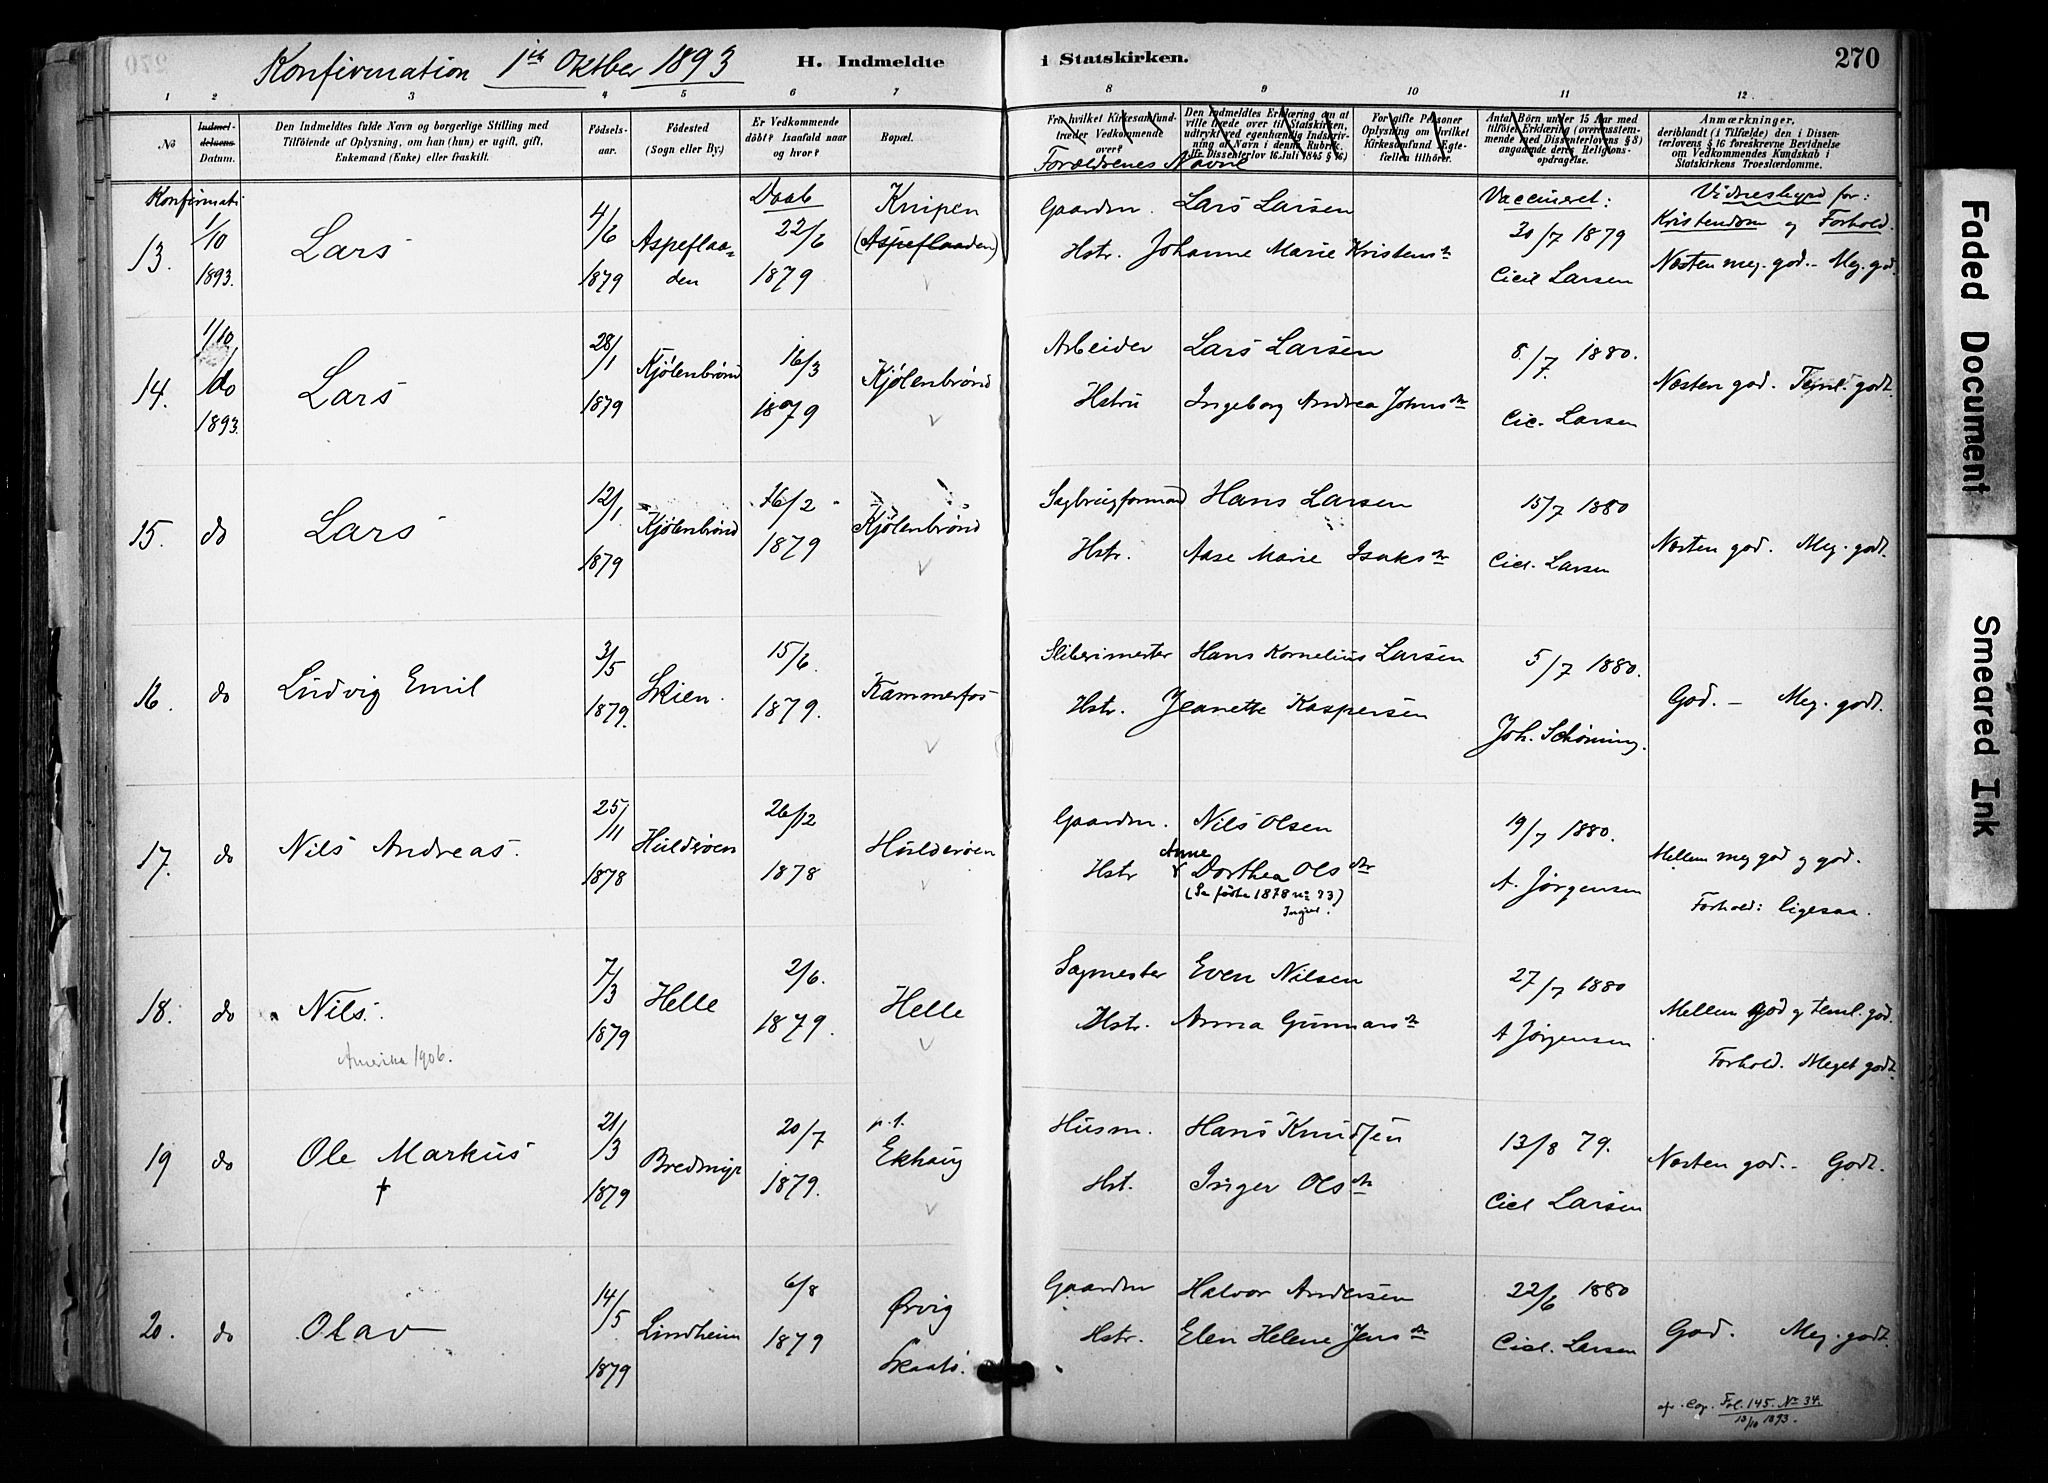 Konfirmation 1ste Oktber 1893
H. Indmeldte i Statskirken.
270
1 2 3 4 5 6 7 8 9 10 11 12.
No
Indmel-
delsens
Datum.
Den Indmeldtes fulde Navn og borgerlige Stilling med
Tilföiende af Oplysning, om han (hun) er ugift, gift,
Enkemand (Enke) eller fraskilt.
Födsels-
aar.
Födested
(Sogn eller By.)
Er Vedkommende
döbt? Isaafald naar
og hvor?
Bopæl.
Fra hvilket Kirkesamfund-
træder Vedkommende
over?
Den Indmeldtes Erklæring om at
ville træde over til Statskirken,
udtrykt ved egenhændig Indskriv-
ning af Navn i denne Rubrik.
Jfr. Dissenterlov 16. Juli 1845 § 16)
For gifte Personer
Oplysning om hvilket
Kirkesamfund Ægte-
fællen tilhörer.
Antal Börn under 15 Aar med
tilföiet Erklæring (overensstem-
mende med Dissenterlovens § 8)
angaaende deres Religions-
opdragelse.
Anmærkninger,
deriblandt (i Tilfælde) den i Dissen-
terlovens § 16 foreskrevne Bevidnelse
om Vedkommendes Kundskab i
Statskirkens Troeslærdomme.
Forældrenes Navne
Konfirmati
Daab
Vaccineret:
Vidnesbyrd for:
Kristendom og Forhold.
13. 1/10 1893. Lars 4/6 1879 Aspeflaa-
den 22/6 1879 Knipen
(Aspeflaaden)
Gaardm. Lars Larsen
Hstr. Johanne Marie Kristensdr
30/7 1879
Cicil Larsen
Næsten meg. god. - Meg. god.
14. 1/10 do 1893. Lars 28/1 1879 Kjølenbrønd 16/3 1879 Kjølenbrønd
Arbeider Lars Larsen
Hstru Ingeborg Andrea Johnsdr
8/7. 1880.
Cic. Larsen
Næsten god. Teml. godt.
15. do Lars 12/1. 1879 Kjølenbrønd 16/2 1879 Kjølenbrønd
Sagbrugformand Hans Larsen
Hstr. Aase Marie Isaksdr
15/7 1880
Cicl. Larsen
Næsten god. Meg. godt.
16. do Ludvig Emil 3/5 1879. Skien. 15/6. 1879. Kammerfos
Sliberimester Hans Kornelius Larsen
Hstr. Jeanette Kaspersen
5/7 1880.
Joh. Schøning.
God. - Meg. godt.
17. do Nils Andreas. 25/11 1878 Huldrøen 26/12 1878 Huldrøen
Gaardm. Nils Olsen
Hstr Anne Dorthea Olsdr
(Se fødte 1878 No 93)
19/7 1880.
A. Jørgensen
Mellem meg god og god.
Forhold: ligesaa.
18. do Nils. 7/3 1879 Helle 2/6. 1879. Helle
Amerika 1906.
Sagmester Even Nilsen
Hstr. Anna Gunnarsdr
27/7 1880
A Jørgensen
Mellem god og teml. god.
Forhold. Meget godt.
19 do Ole Markus 21/3 1879 Bredmyr 20/7 1879. p.t.
Ekhaug
†
Husm. Hans Knudsen
Hst. Inger Olsdr
13/8 79.
Cicl Larsen
Næsten god. - Godt.
20. do Olav 14/5 1879 Lindheim 6/8 1879 Ørvig
Skaatø.
Gaardm Halvor Andersen
Hstr. Elen Helene Jensdr
22/6 1880
Cicl. Larsen
God. Meg. godt.
Fol. 145. No 34.
13/10 1893.
Faded Document
Smeared Ink